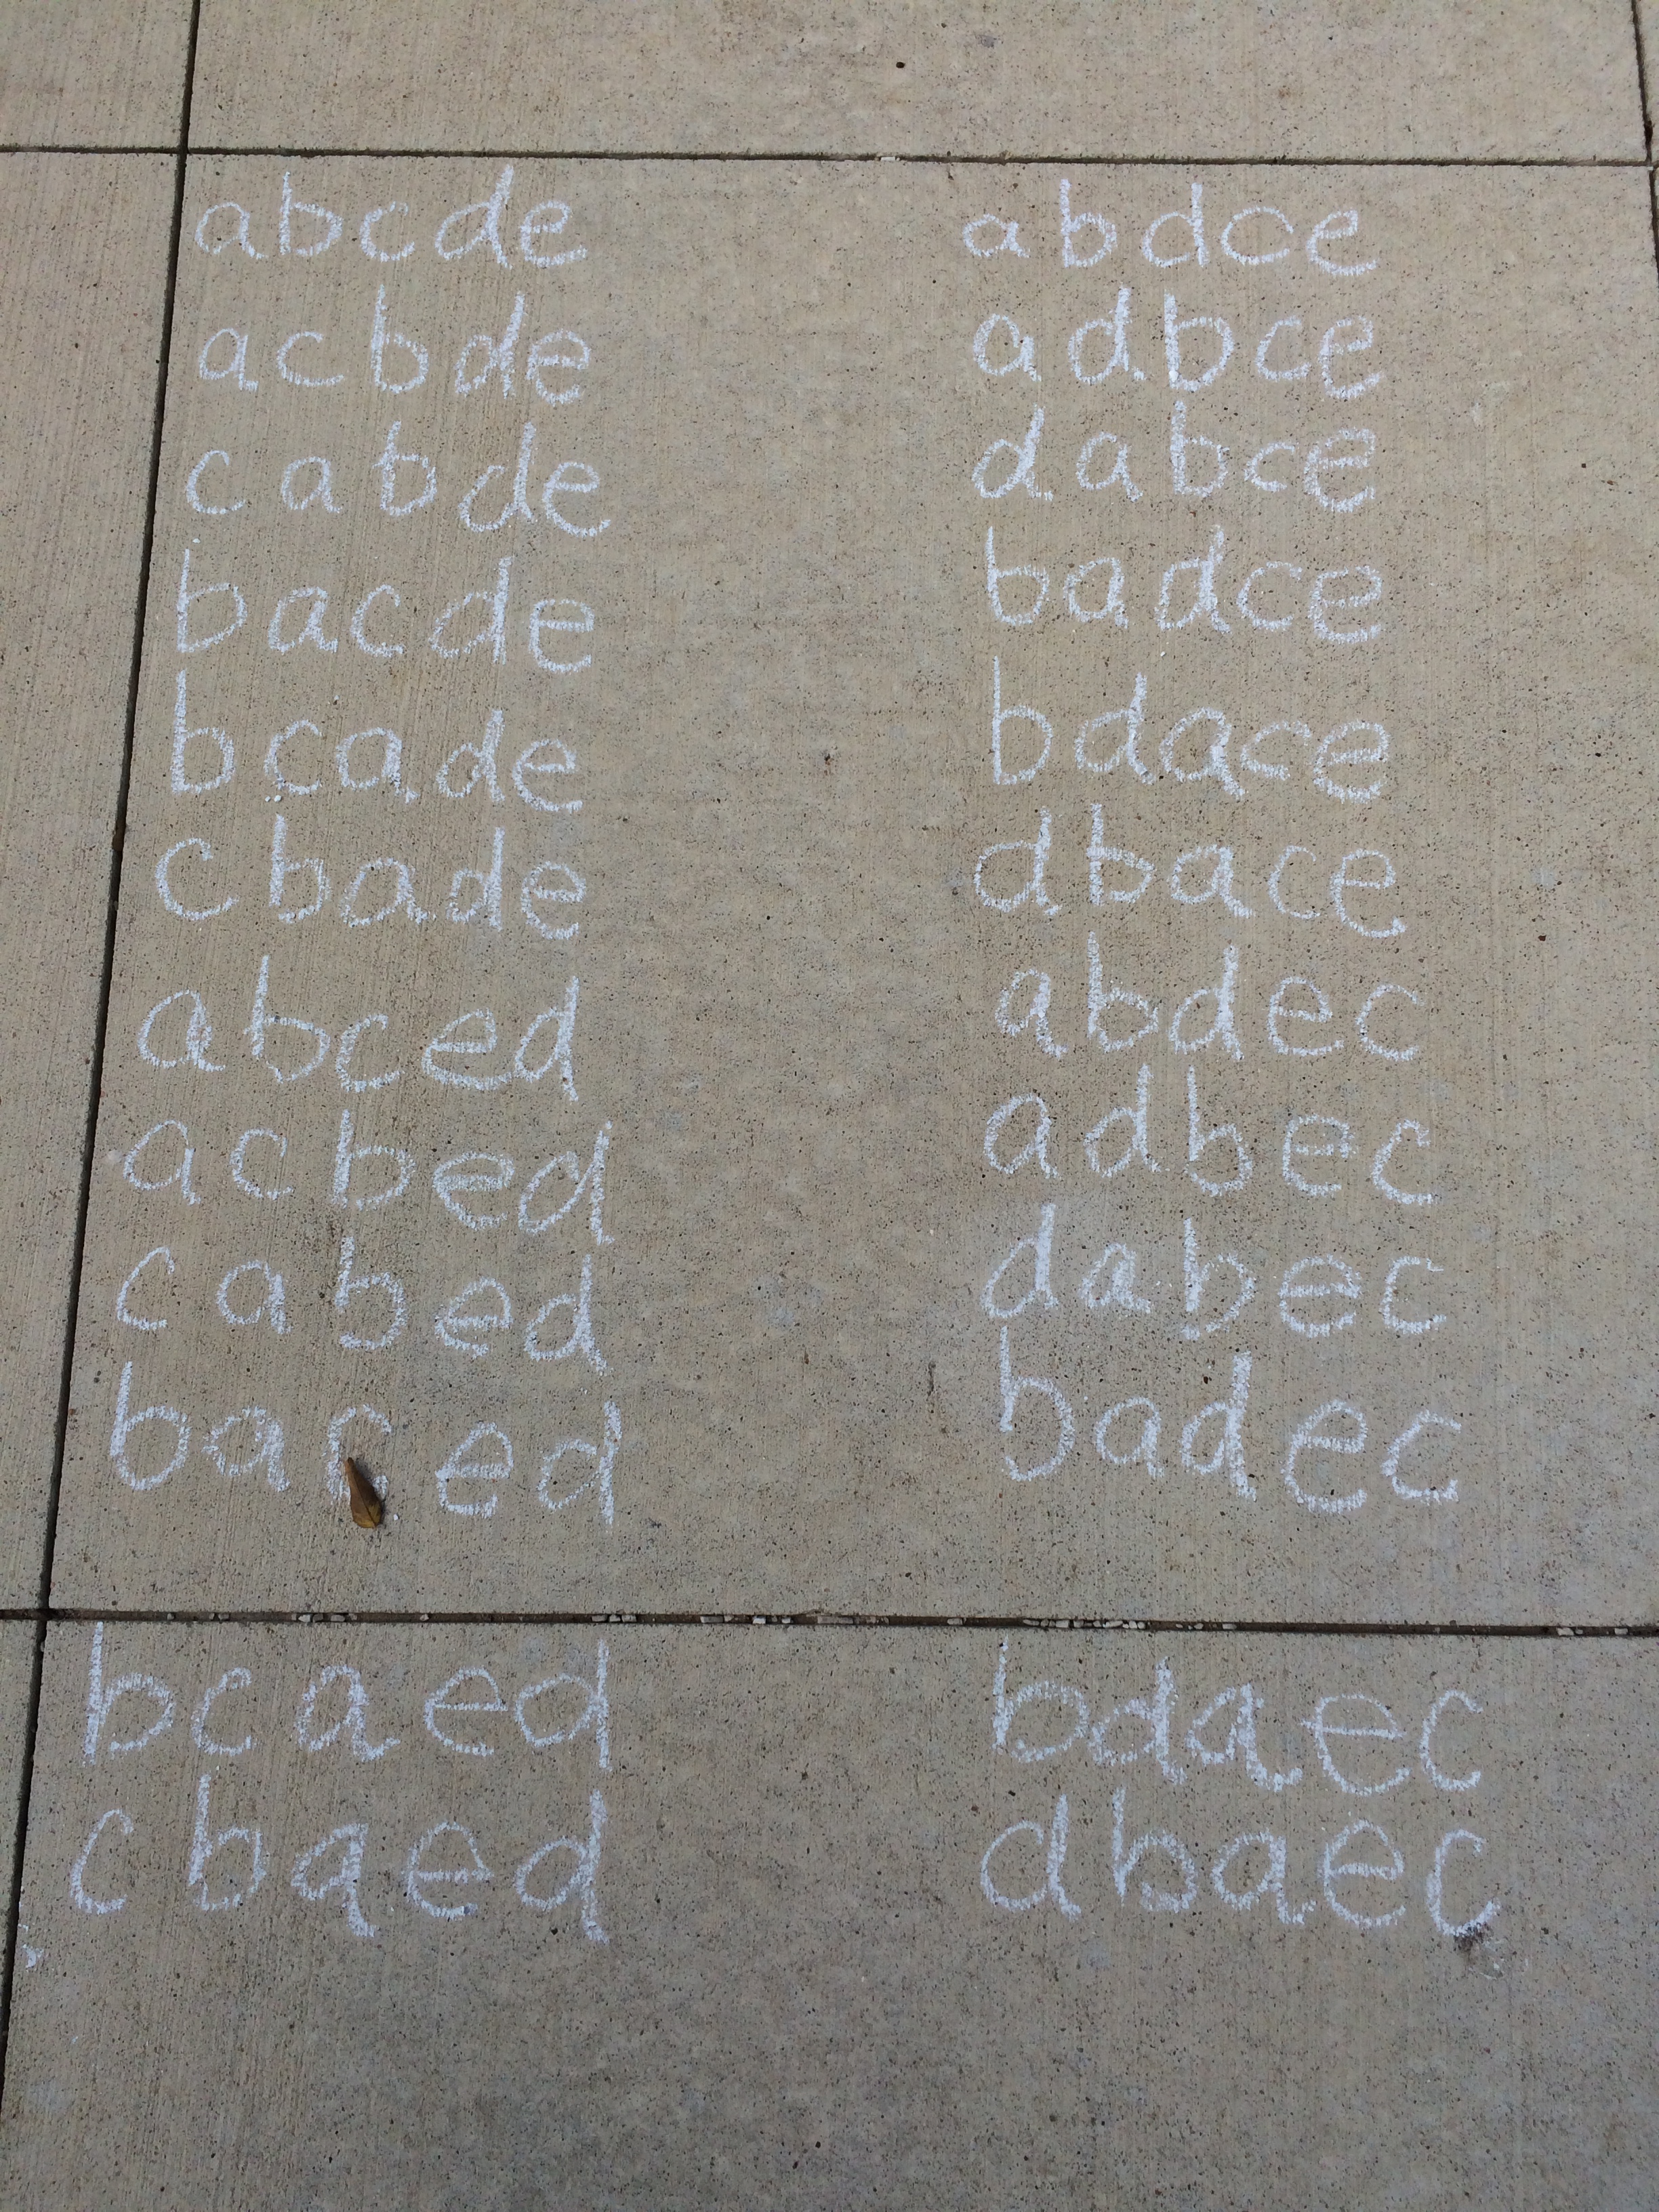 abcde abdce
acbde adbce
cabde dabce
bacde badce
bcade bdace
cbade dbace
abced abdec
acbed adbec
cabed dabec
baced badec
bcaed bdaec
cbaed dbaec